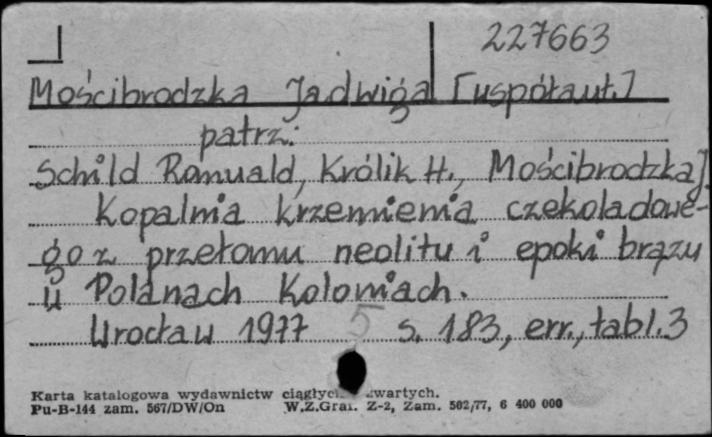 227663
Mościbrodzka Jadwiga [współaut.]
patrz:
Schild Romuald, Królik H., Mościbrodzka J.
Kopalnia krzemienia czekoladowe-
go z przełomu neolitu i epoki brązu
w Polanach Koloniach.
Wrocław 1977 5 s. 183, err., tabl. 3
Karta katalogowa wydawnictw zwartych.
Pu-B-144 zam. 567/DW/On W.Z.Graf. Z-2, Zam. 502/77, 6 400 000